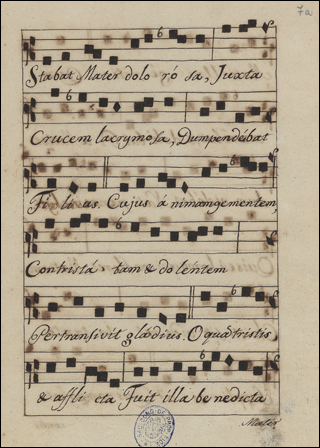 7a
Stabat Mater dolo ró sa, Juxta
Crucem lacrymosa, Dumpendébat
Fi li us. Cujus á nimamgementem,
Contristá tam & dolentem
Pertransivit gládius. O quã tristis,
& affli cta Fuit illa be nedicta
Mater